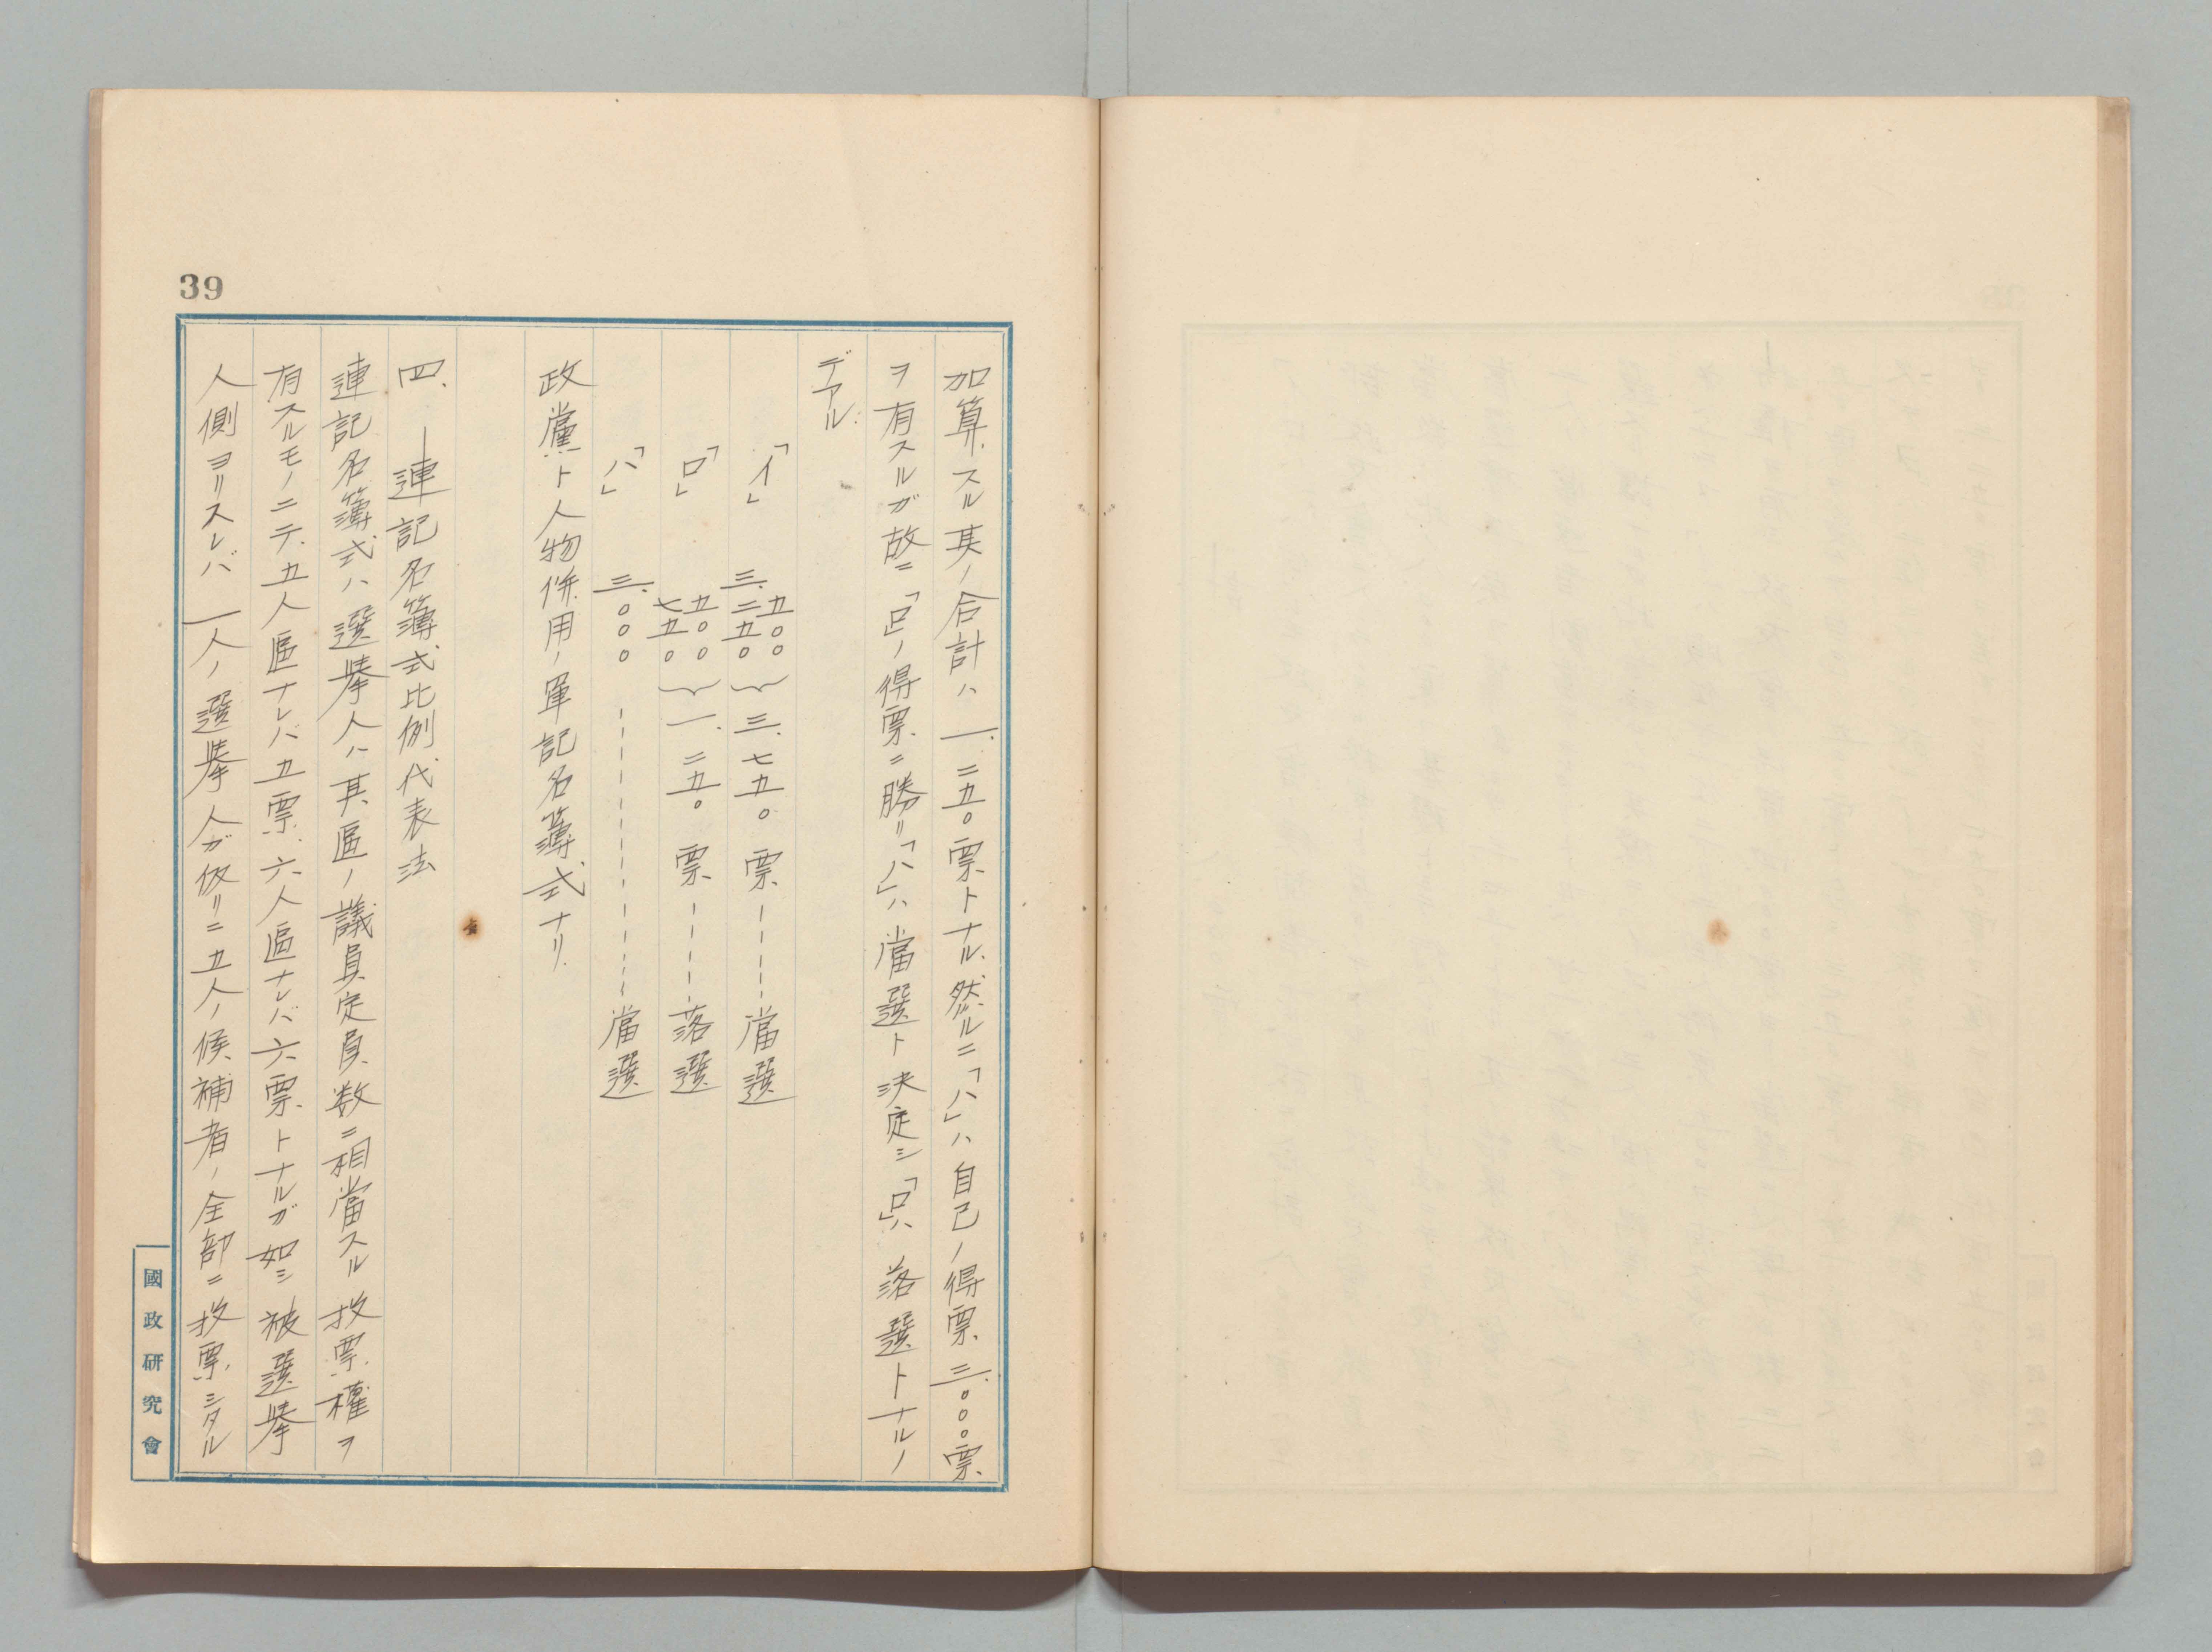 39
加算スル其ノ合計ハ一.二五〇票トナル、然ルニ「ハ」ハ自己ノ得票三.〇〇〇票
ヲ有スルガ故ニ「ロ」ノ得票ニ勝リ「ハ」ハ當選ト決定シ「ロ」ハ落選トナルノ
デアル.
「イ」 五〇〇 三.二五〇 } 三.七五〇票-----當選
「ロ」 五〇〇 七五〇 } 一.二五〇票-----落選
「ハ」 三.〇〇〇-----------當選
政黨ト人物併用ノ單記名簿式ナリ.
四、連記名簿式比例代表法
連記名簿式ハ選擧人ハ其區ノ議員定員数ニ相當スル投票權ヲ
有スルモノニテ、五人區ナレバ五票、六人區ナレバ六票トナルガ如シ被選擧
人側ヨリスレバ一人ノ選擧人ガ仮リニ五人ノ候補者ノ全部ニ投票シタル
國政研究會